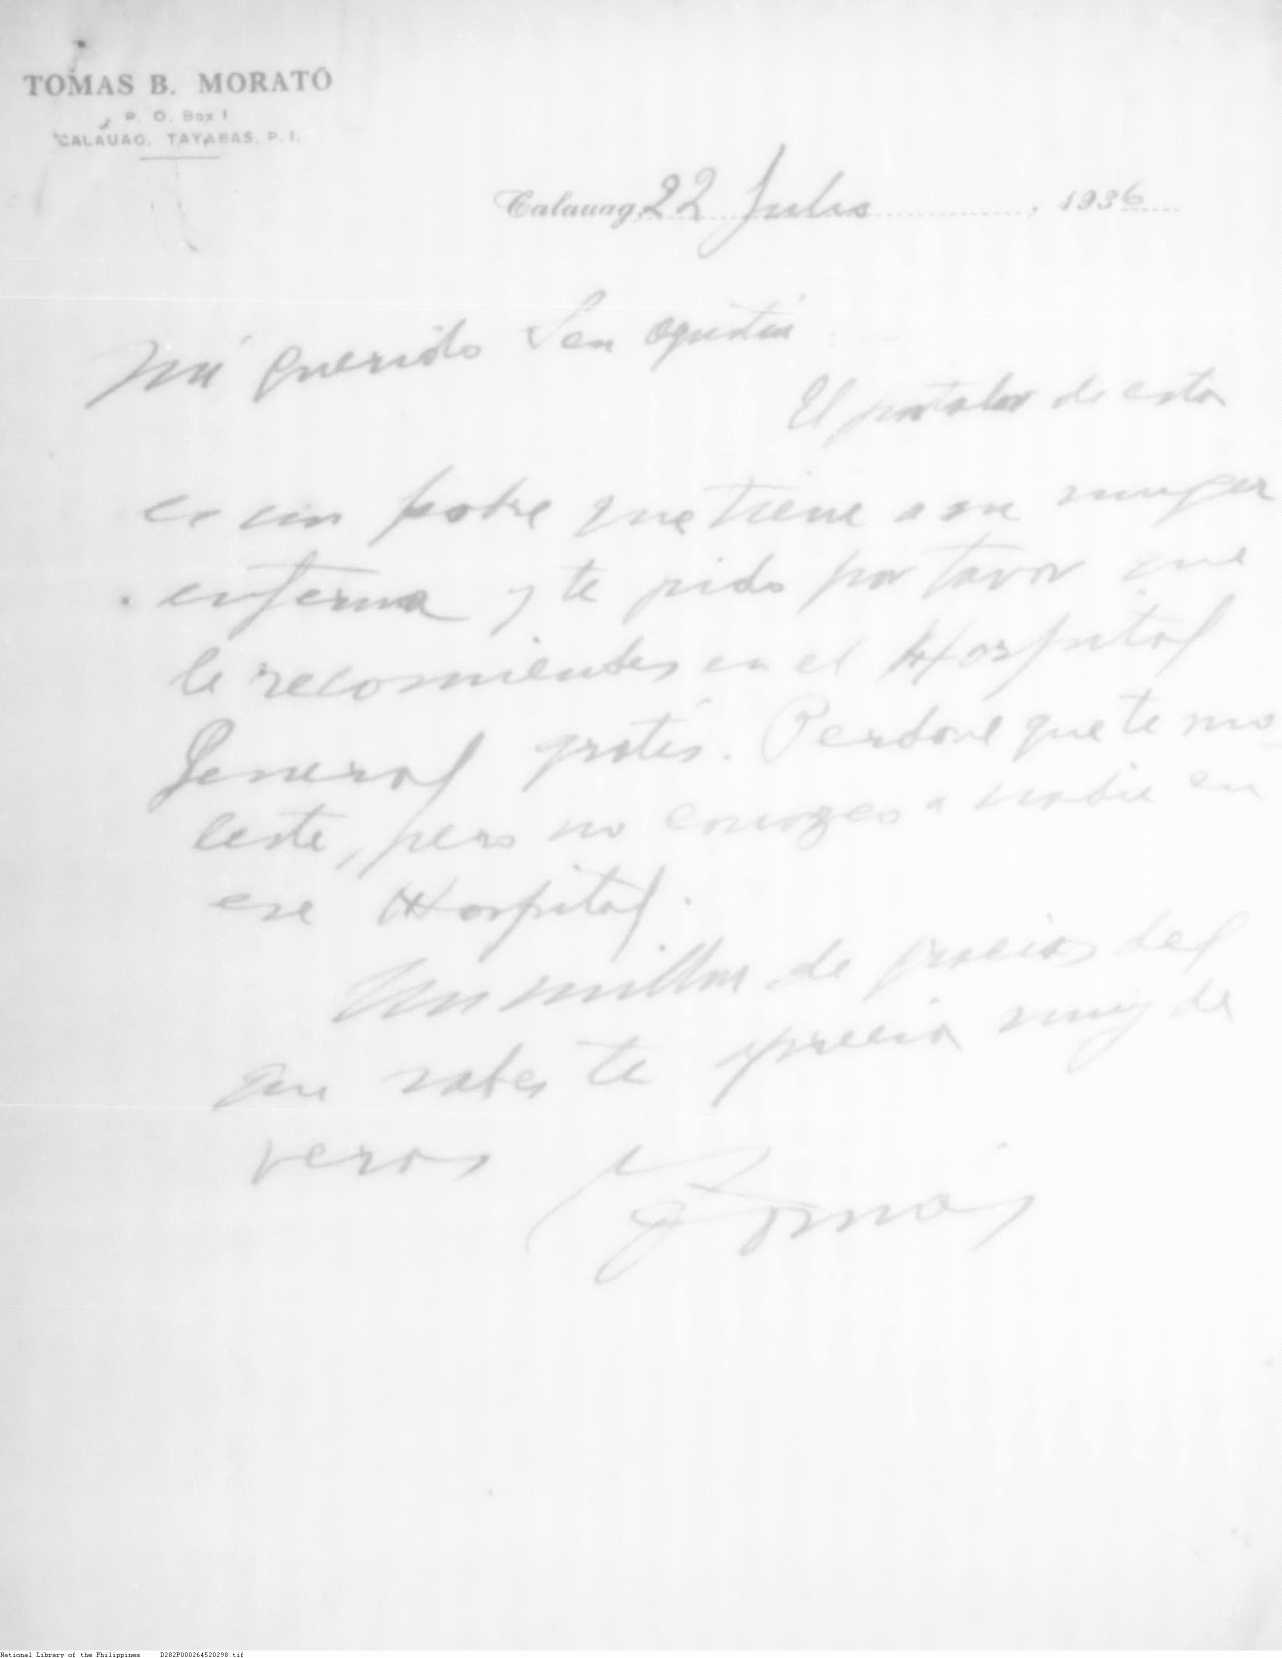 TOMAS B. MORATÓ
P. O. Box 1
CALAUAG, TAYABAS, P. I.
Calauag, 22 Julio, 1936
Mi querido San Agustin
El portador de esta
es un pobre que tiene a su muger
enferma y te pido por favor que
le recomiendes en el Hospital
General gratis. Perdone que te mo
leste, pero no conozco a nadie en
ese Hospital.
Un millon de gracias del
que sabes te aprecia muy de
veras
Tomás
National Library of the Philippines D282P000264520298.tif